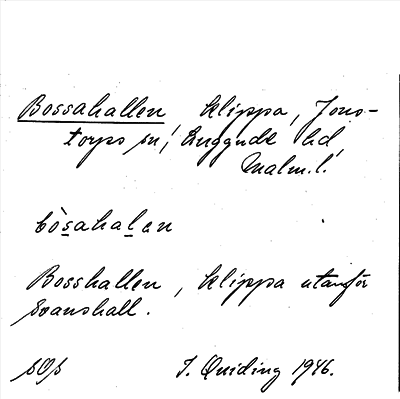 Bossahallen, klippa, Jons-
torps sn, Luggude hd,
Malm.l.
bòsahalen
Bosshallen, klippa utanför
Svanshall.
J. Quiding 1946.